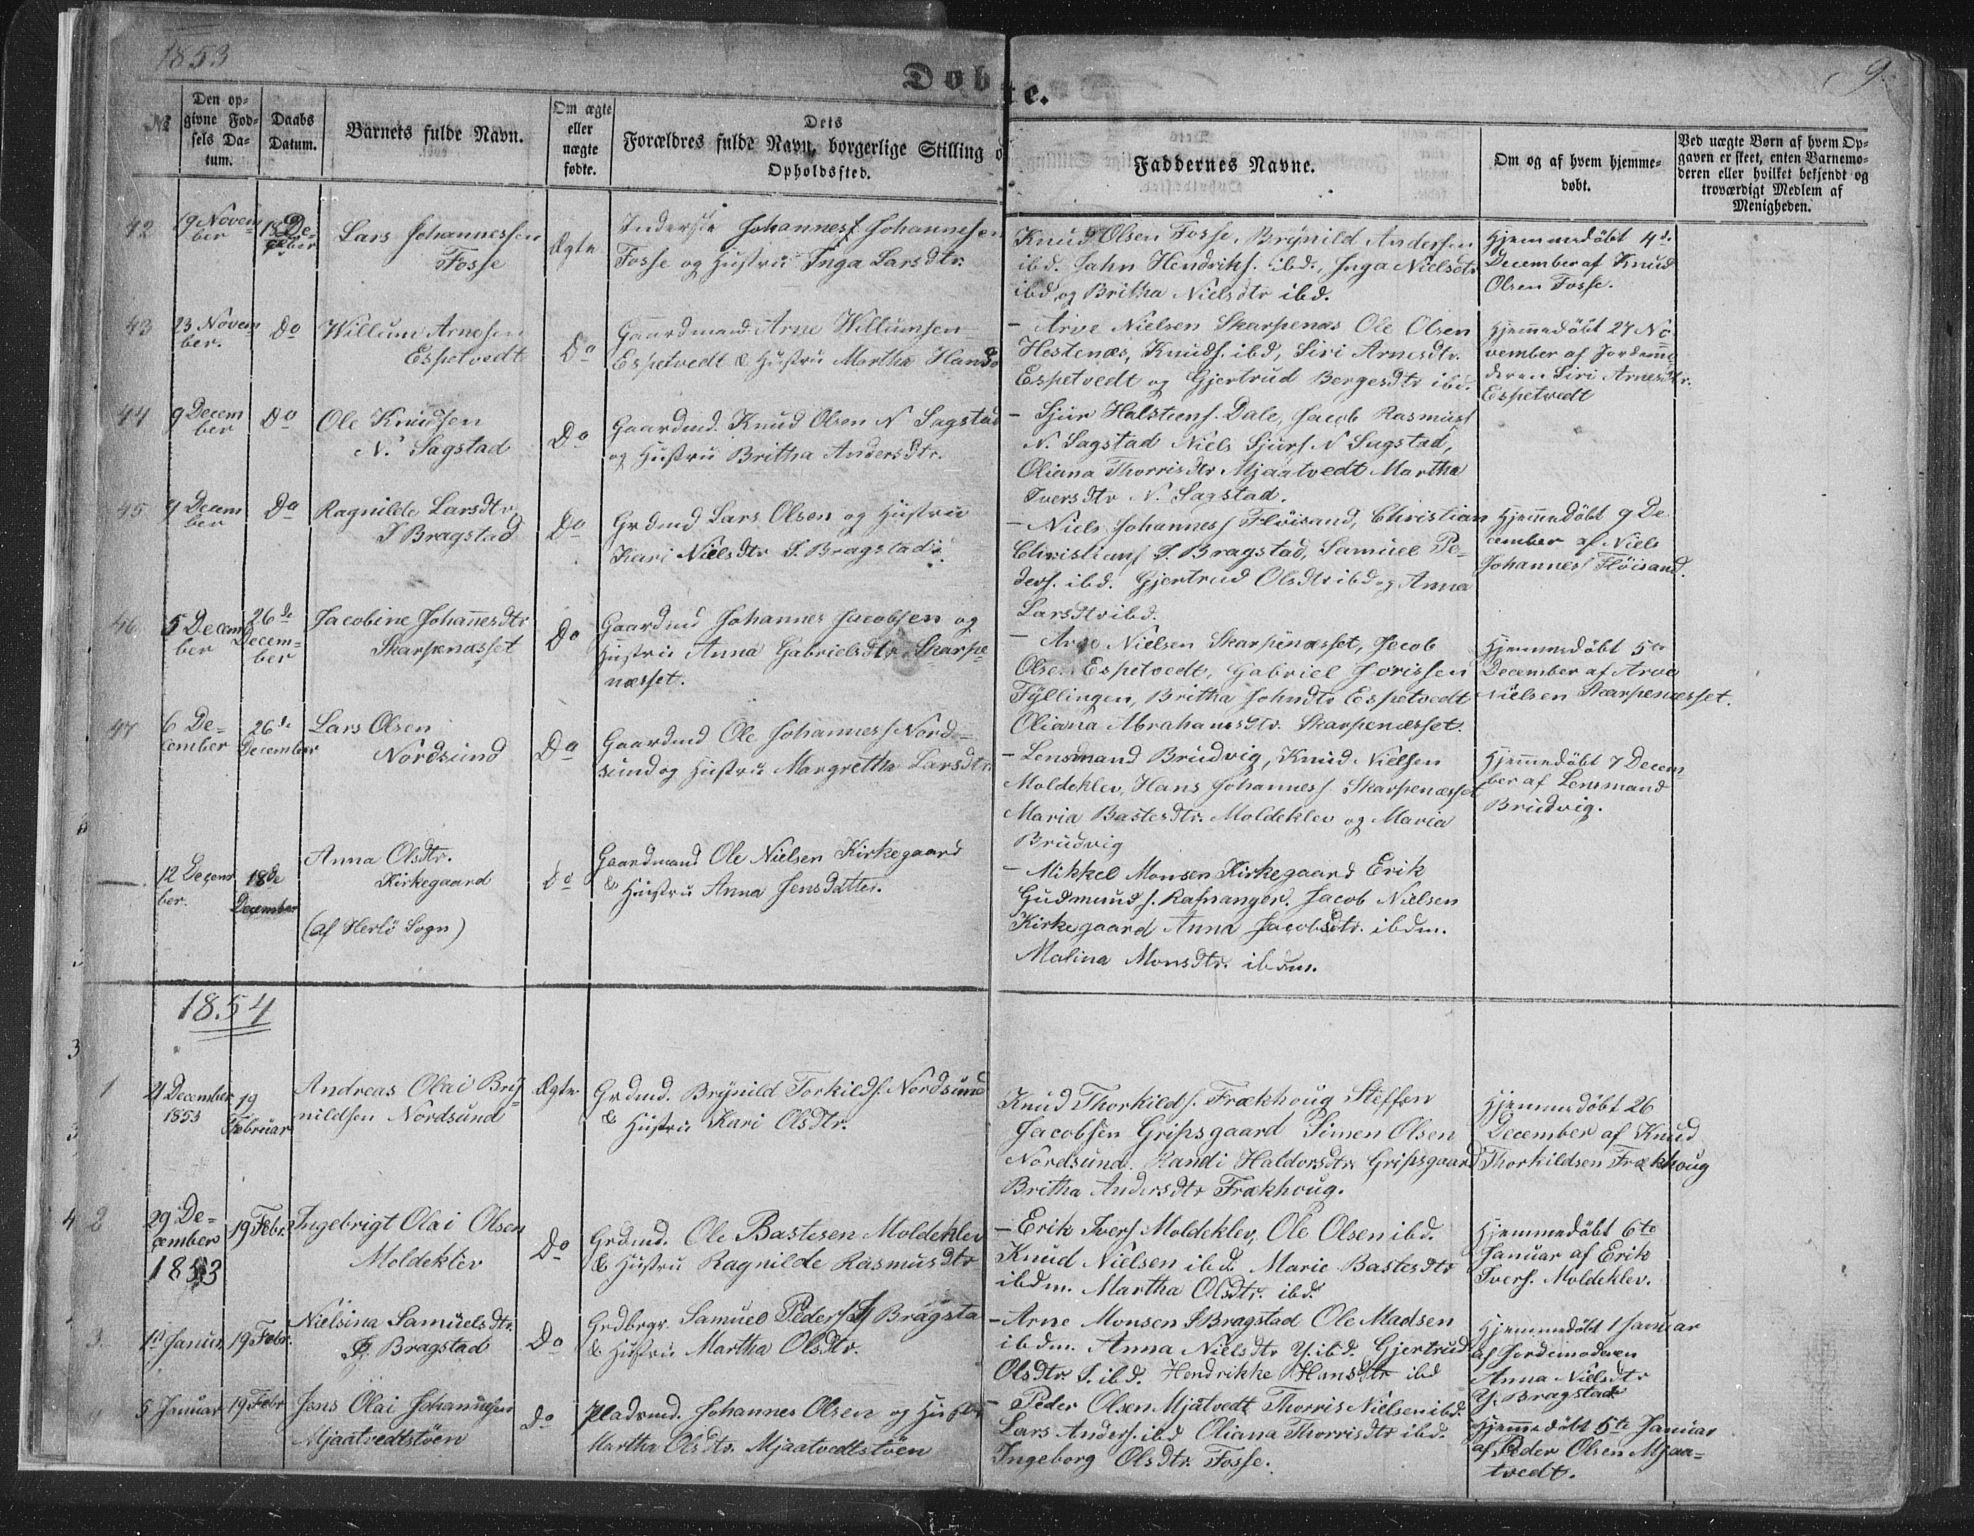 1853
9.
Døbte.
№
Den opgivne Fødsels Datum.
Daabs Datum.
Barnets fulde Navn.
Om ægte eller uægte fødte.
Dets Forældres fulde Navn, borgerlige Stilling o
Opholdssted.
Faddernes Navne.
Om og af hvem hjemmedøbt.
Ved uægte Børn af hvem Opgaven er skeet, enten Barnemoderen eller hvilket bekjendt og troværdigt Medlem af Menigheden.
42
19 Novem-
ber
18 De-
cember
Lars Johannessen
Fosse
Ægte
Inderste Johannes Johannessen
Fosse og Hustru Inga Larsdtr.
Knud Olsen Fosse, Brynild Andersen
ibd. Jahn Hendriks. ibd., Inga Nielsdtr
ibd og Britha Nielsdtr ibd.
Hjemmedøbt 4de
December af Knud
Olsen Fosse.
43
23 Novem
ber.
Do
Willum Arnesen
Espetvedt
Do
Gaardmand Arne Willumsen
Espetvedt & Hustru Martha Hansd
- Arve Nielsen Skarpenæs Ole Olsen
Hestenæs, Knuds. ibd, Siri Arnesdtr.
Espetvedt og Gjertrud Bergesdtr ibd.
Hjemmedøbt 27 No
vember af Jordemo
deren Siri Arnesdtr.
Espetvedt
44
9 Decem
ber
Do
Ole Knudsen
N. Sagstad
Do
Gaardmd. Knud Olsen N Sagstad
og Hustru Britha Andersdtr.
- Sjur Halstens. Dale, Jacob Rasmuss
N. Sagstad Niels Sjurs. N Sagstad,
Oliana Thorrisdtr Mjaatvedt Martha
Iversdtr N. Sagstad.
45
9 Decem
ber
Do
Ragnilde Larsdtr
I Bragstad
Do
Grdmd Lars Olsen og Hustru
Kari Nielsdtr I. Bragstad.
- Niels Johanness Fløisand, Christian
Christians I. Bragstad, Samuel Pe-
ders. ibd. Gjertrud Olsdtr ibd og Anna
Larsdtr ibd.
Hjemmedøbt 9 De
cember af Niels
Johanness Fløisand.
46
5 Decem
ber
26de
Decem-
ber
Jacobine Johannesdtr
Skarpenæsset
Do
Gaardmd Johannes Jacobsen og
Hustru Anna Gabrielsdtr. Skarpe-
næsset.
- Arve Nielsen Skarpenæsset, Jacob
Olsen Espetvedt, Gabriel Jorissen
Tyllingen, Britha Johndtr Espetvedt
Oliana Abrahamsdtr. Skarpenæsset.
Hjemmedøbt 5te
December af Arve
Nielsen Skarpenæsset.
47
6 De-
cember
26de
December
Lars Olsen
Nordsund
Do
Gaardmd Ole Johanness Nord-
sund og Hustru Margretha Larsdtr
- Lensmand Brudvig, Knud Nielsen
Moldeklev, Hans Johanness Skarpenæsset
Maria Bastesdtr. Moldeklev og Maria
Brudvig
Hjemmedøbt 7 Decem
ber af Lensmand
Brudvig.
12 Decem
ber.
18de
December
Anna Olsdtr.
Kirkegaard
(af Herlø Sogn)
do
Gaardmand Ole Nielsen Kirkegaard
& Hustru Anna Jensdatter.
- Mikkel Monsen Kirkegaard Erik
Gudmunds. Rafnanger. Jacob Nielsen
Kirkegaard Anna Jacobsdtr. ibdm.
Malina Monsdtr. ibdm.
1854
1
21 December
1853
19
Februar
Andreas Olai Bry-
nildsen Nordsund
Ægte
Grdmd. Brynild Torkilds. Nordsund
& Hustru Kari Olsdtr.
Knud Thorkilds. Frækhoug Steffen
Jacobsen Gripsgaard Simen Olsen
Nordsund. Randi Haldorsdtr Gripsgaard
Britha Andersdtr Frækhoug.
Hjemmedøbt 26
December af Knud
Thorkildsen Frækhoug
2
29 De-
cember
1853
19 Febr.
Ingebrigt Olai Olsen
Moldeklev
Do
Grdmd. Ole Bastesen Moldeklev
& Hustru Ragnilde Rasmusdtr
- Erik Ivers. Moldeklev, Ole Olsen ibd.
Knud Nielsen ibd Marie Bastesdtr
ibdm. Martha Olsdtr. ibd.
Hjemmedøbt 6te
Januar af Erik
Ivers. Moldeklev.
3.
1st Januar
19 Febr.
Nielsina Samuelsdtr.
I. Bragstad
Do
Grdbrgr. Samuel Peders I Bragsta
& Hustru Martha Olsdtr.
- Arne Monsen I Bragstad Ole Madsen
ibdm. Anna Nielsdtr Y. ibd. Gjertrud
Olsdtr I. ibd. Hendrikke Hansdtr ibd
Hjemmedøbt 1 Januar
af Jordemoderen
Anna Nielsdtr
Y. Bragstad
4
5 Januar
19 Febr
Jens Olai Johannesen
Mjaatvedtstøen
Do
Pladsmd. Johannes Olsen og Hustru
Martha Olsdtr. Mjaatvedtstøen
- Peder Olsen Mjatvedt Thorris Nielsen ibd.
Lars Anders. ibd Oliana Thorrisdtr ibd.
Ingeborg Olsdtr. Fosse.
Hjemmedøbt 5te Januar
af Peder Olsen Mjaa-
tvedt.